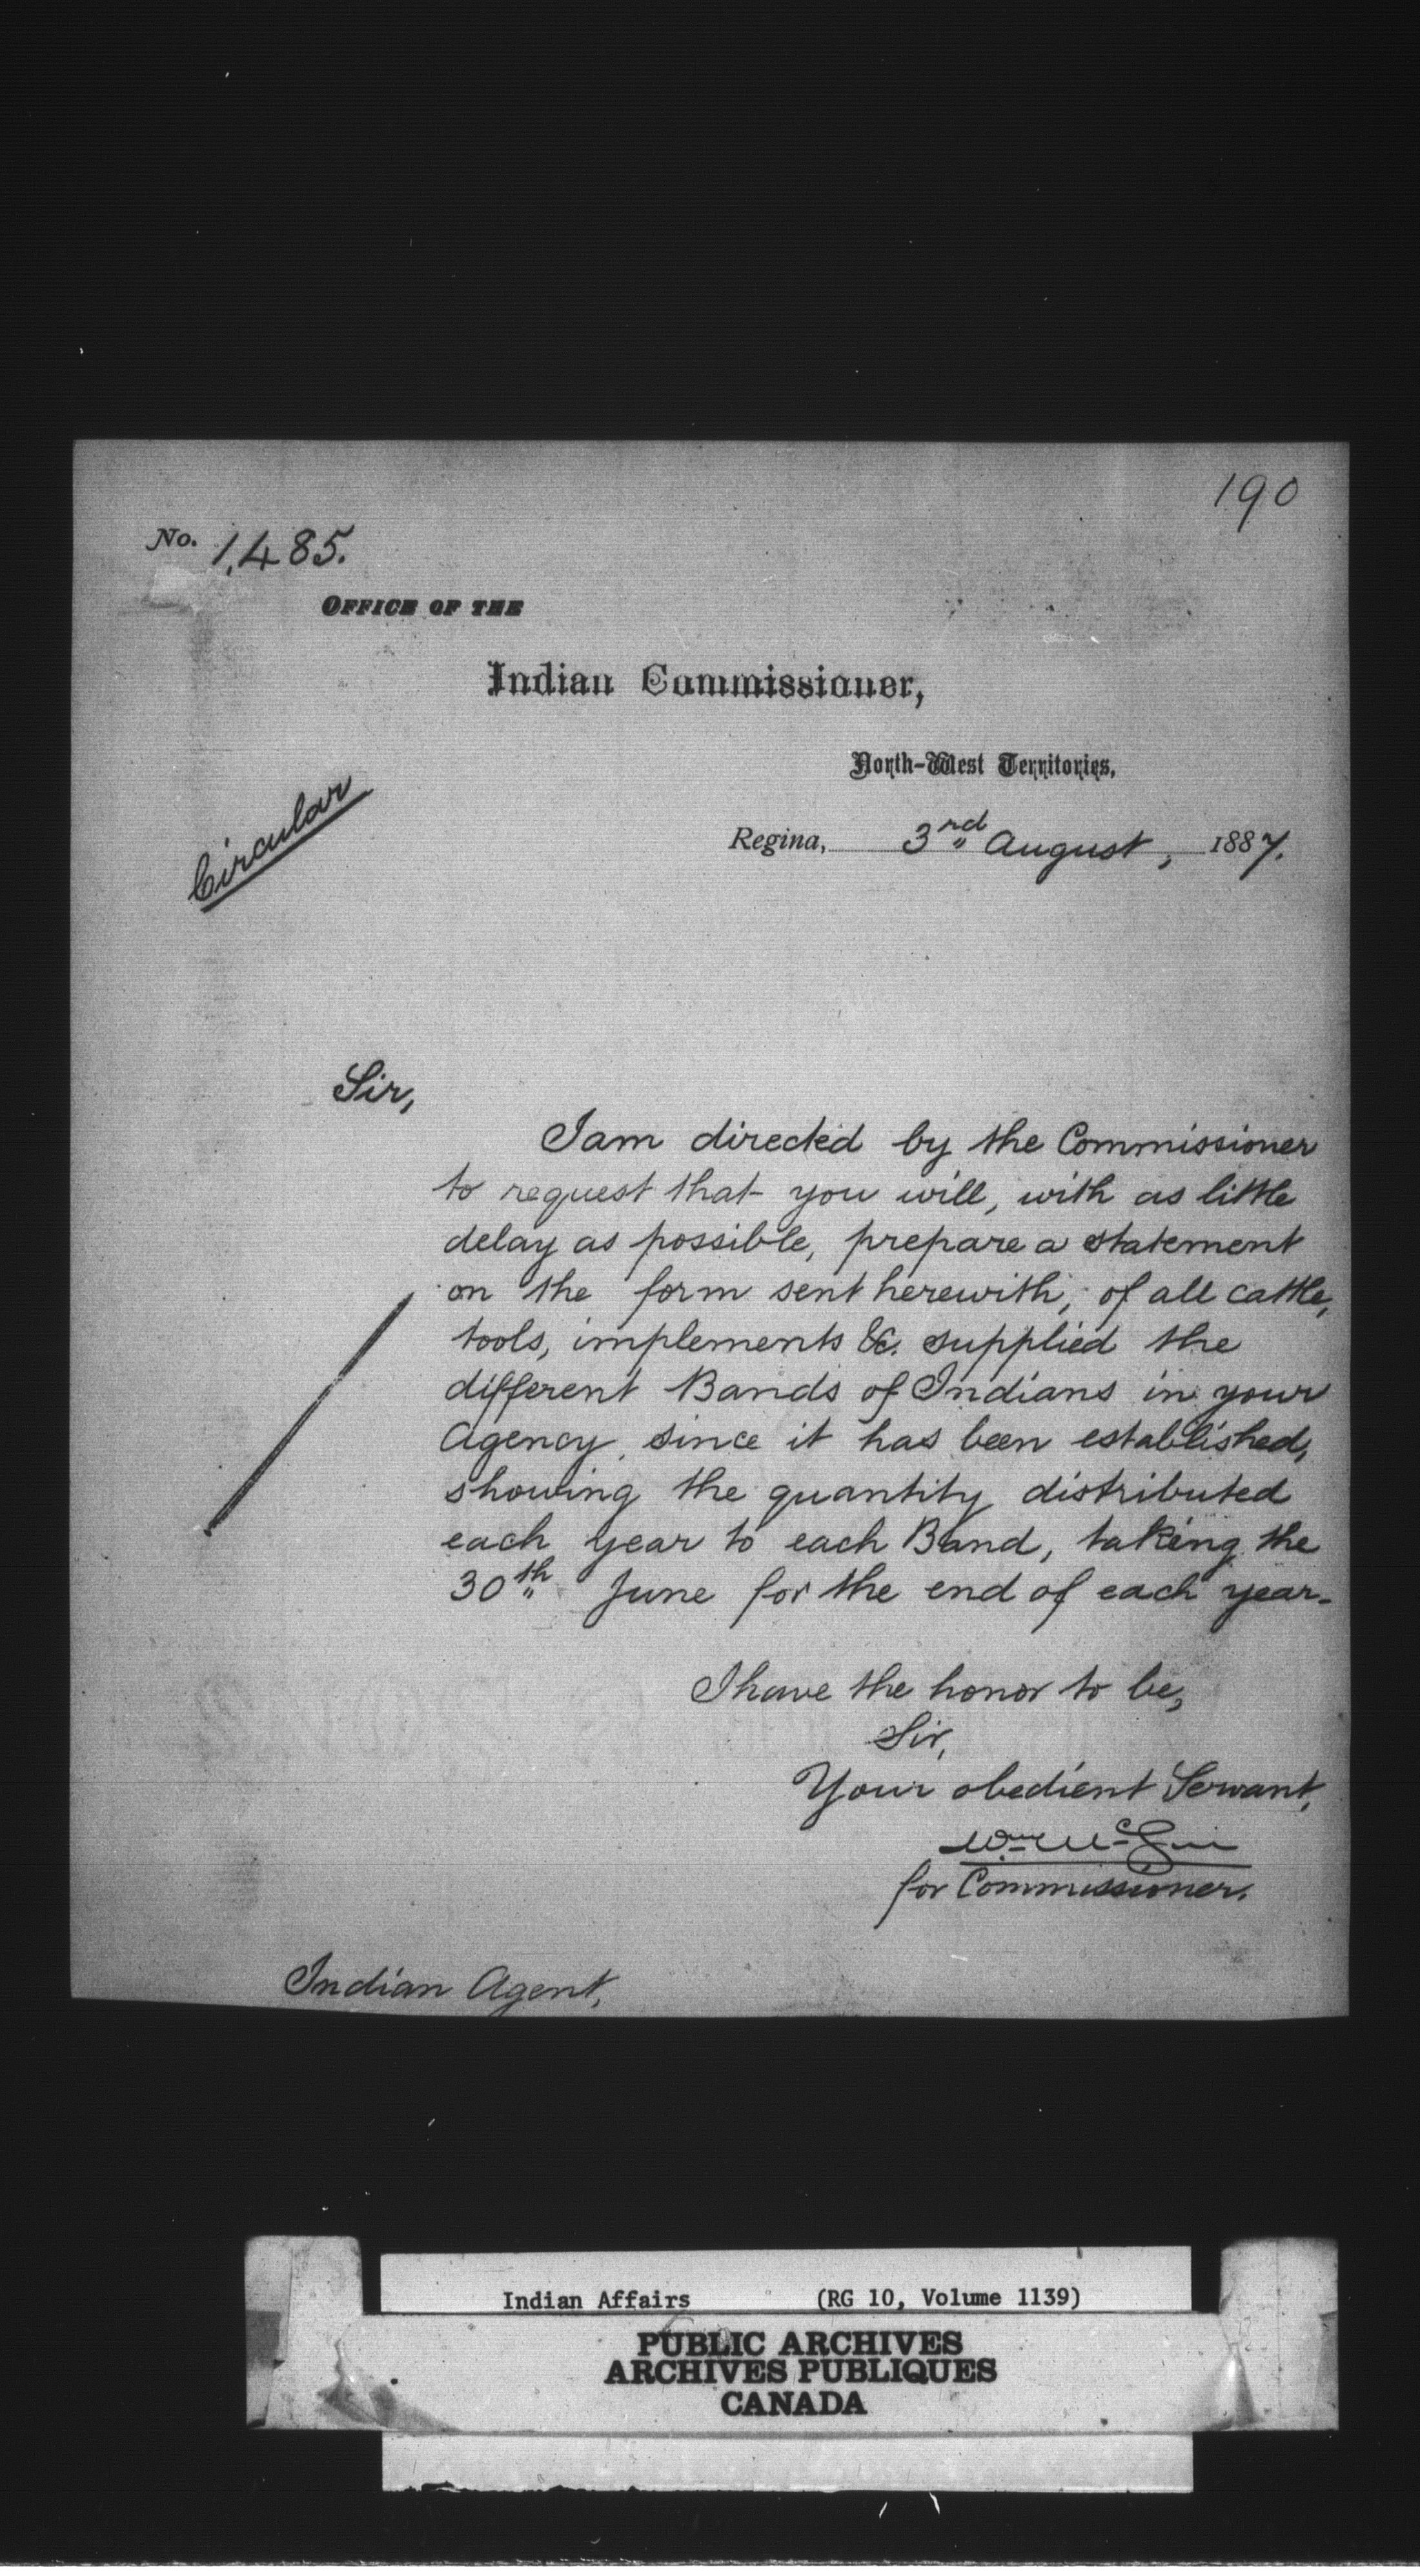 190
No. 1,485.
OFFICE OF THE
Indian Commissioner,
North-West Territories,
Circular
Regina, 3rd August, 1887.
Sir,
I am directed by the Commissioner
to request that you will, with as little
delay as possible, prepare a statement
on the form sent herewith, of all cattle,
tools, implements &c. supplied the
different Bands of Indians in your
Agency since it has been established,
showing the quantity distributed
each year to each Band, taking the
30th June for the end of each year.
I have the honor to be,
Sir,
Your obedient Servant,
Wm Mc
for Commissioner.
Indian Agent,
Indian Affairs (RG 10, Volume 1139)
PUBLIC ARCHIVES
ARCHIVES PUBLIQUES
CANADA